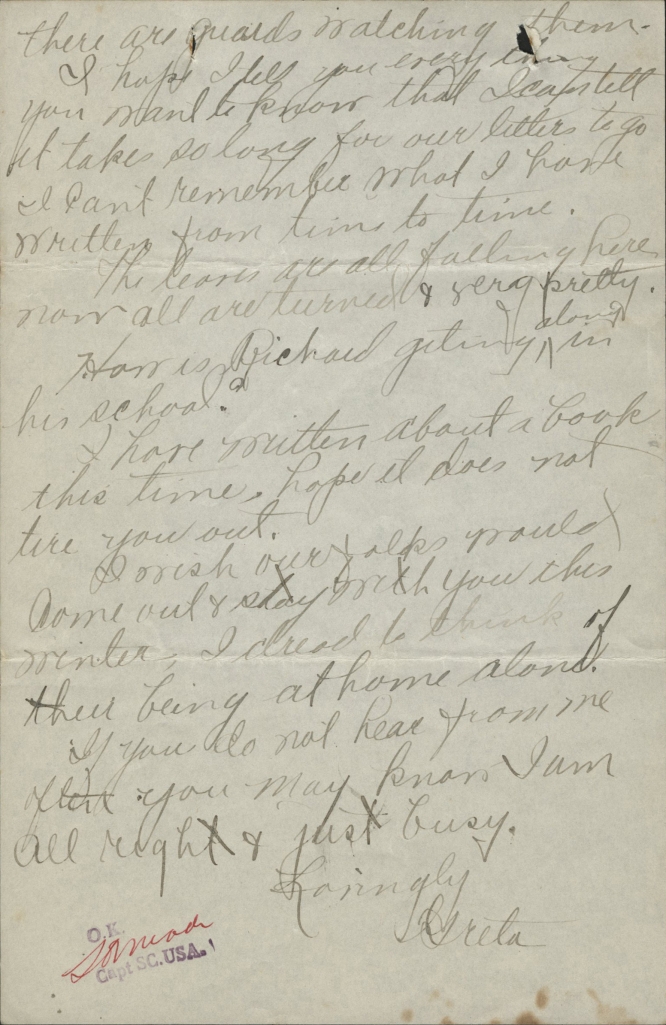 there are guards watching them.
I hope I tell you every thing
you want to know that I can tell
it takes so long for our letters to go
I can't remember what I have
written from time to time.
The leaves are all falling here
now all are turned & very pretty.
How is Richard geting along in
his school?
I have written about a book
this time, hope it does not
tire you out.
I wish our folks would
come out & stay with you this
winter, I dread to think of
their being at home alone.
If you do not hear from me
often you may know I am
all right & just busy.
Lovingly
Greta
O.K.
Capt SC. USA.